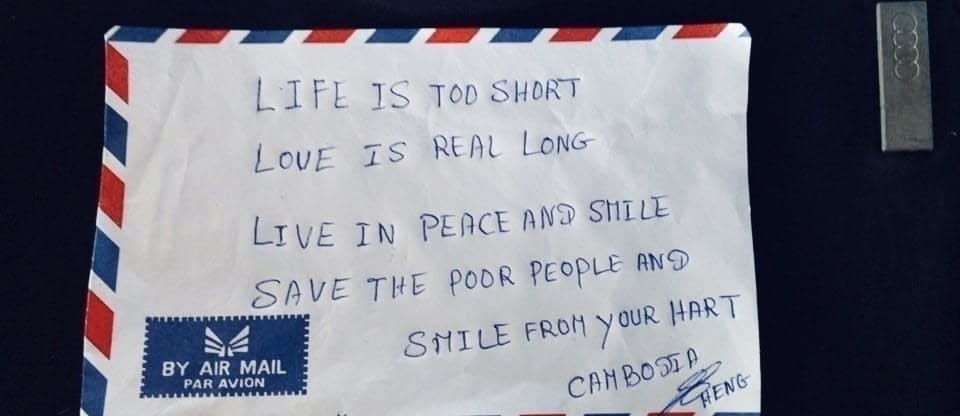 LIFE IS TOO SHORT
LOVE IS REAL LONG
LIVE IN PEACE AND SMILE
SAVE THE POOR PEOPLE AND
SMILE FROM YOUR HART
CAMBODIA
HENG
BY AIR MAIL
PAR AVION